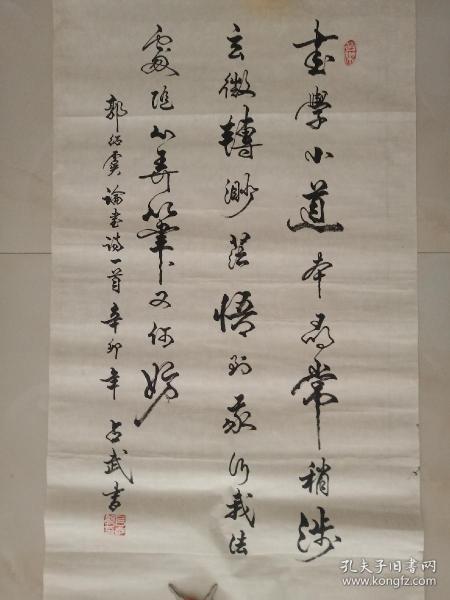 書學小道本尋常稍涉
玄微轉渺茫悟到我行我法
處隨心弄筆又何妨
郭紹虞論書詩一首 辛卯年 武書
孔夫子旧书网
www.kongfz.com